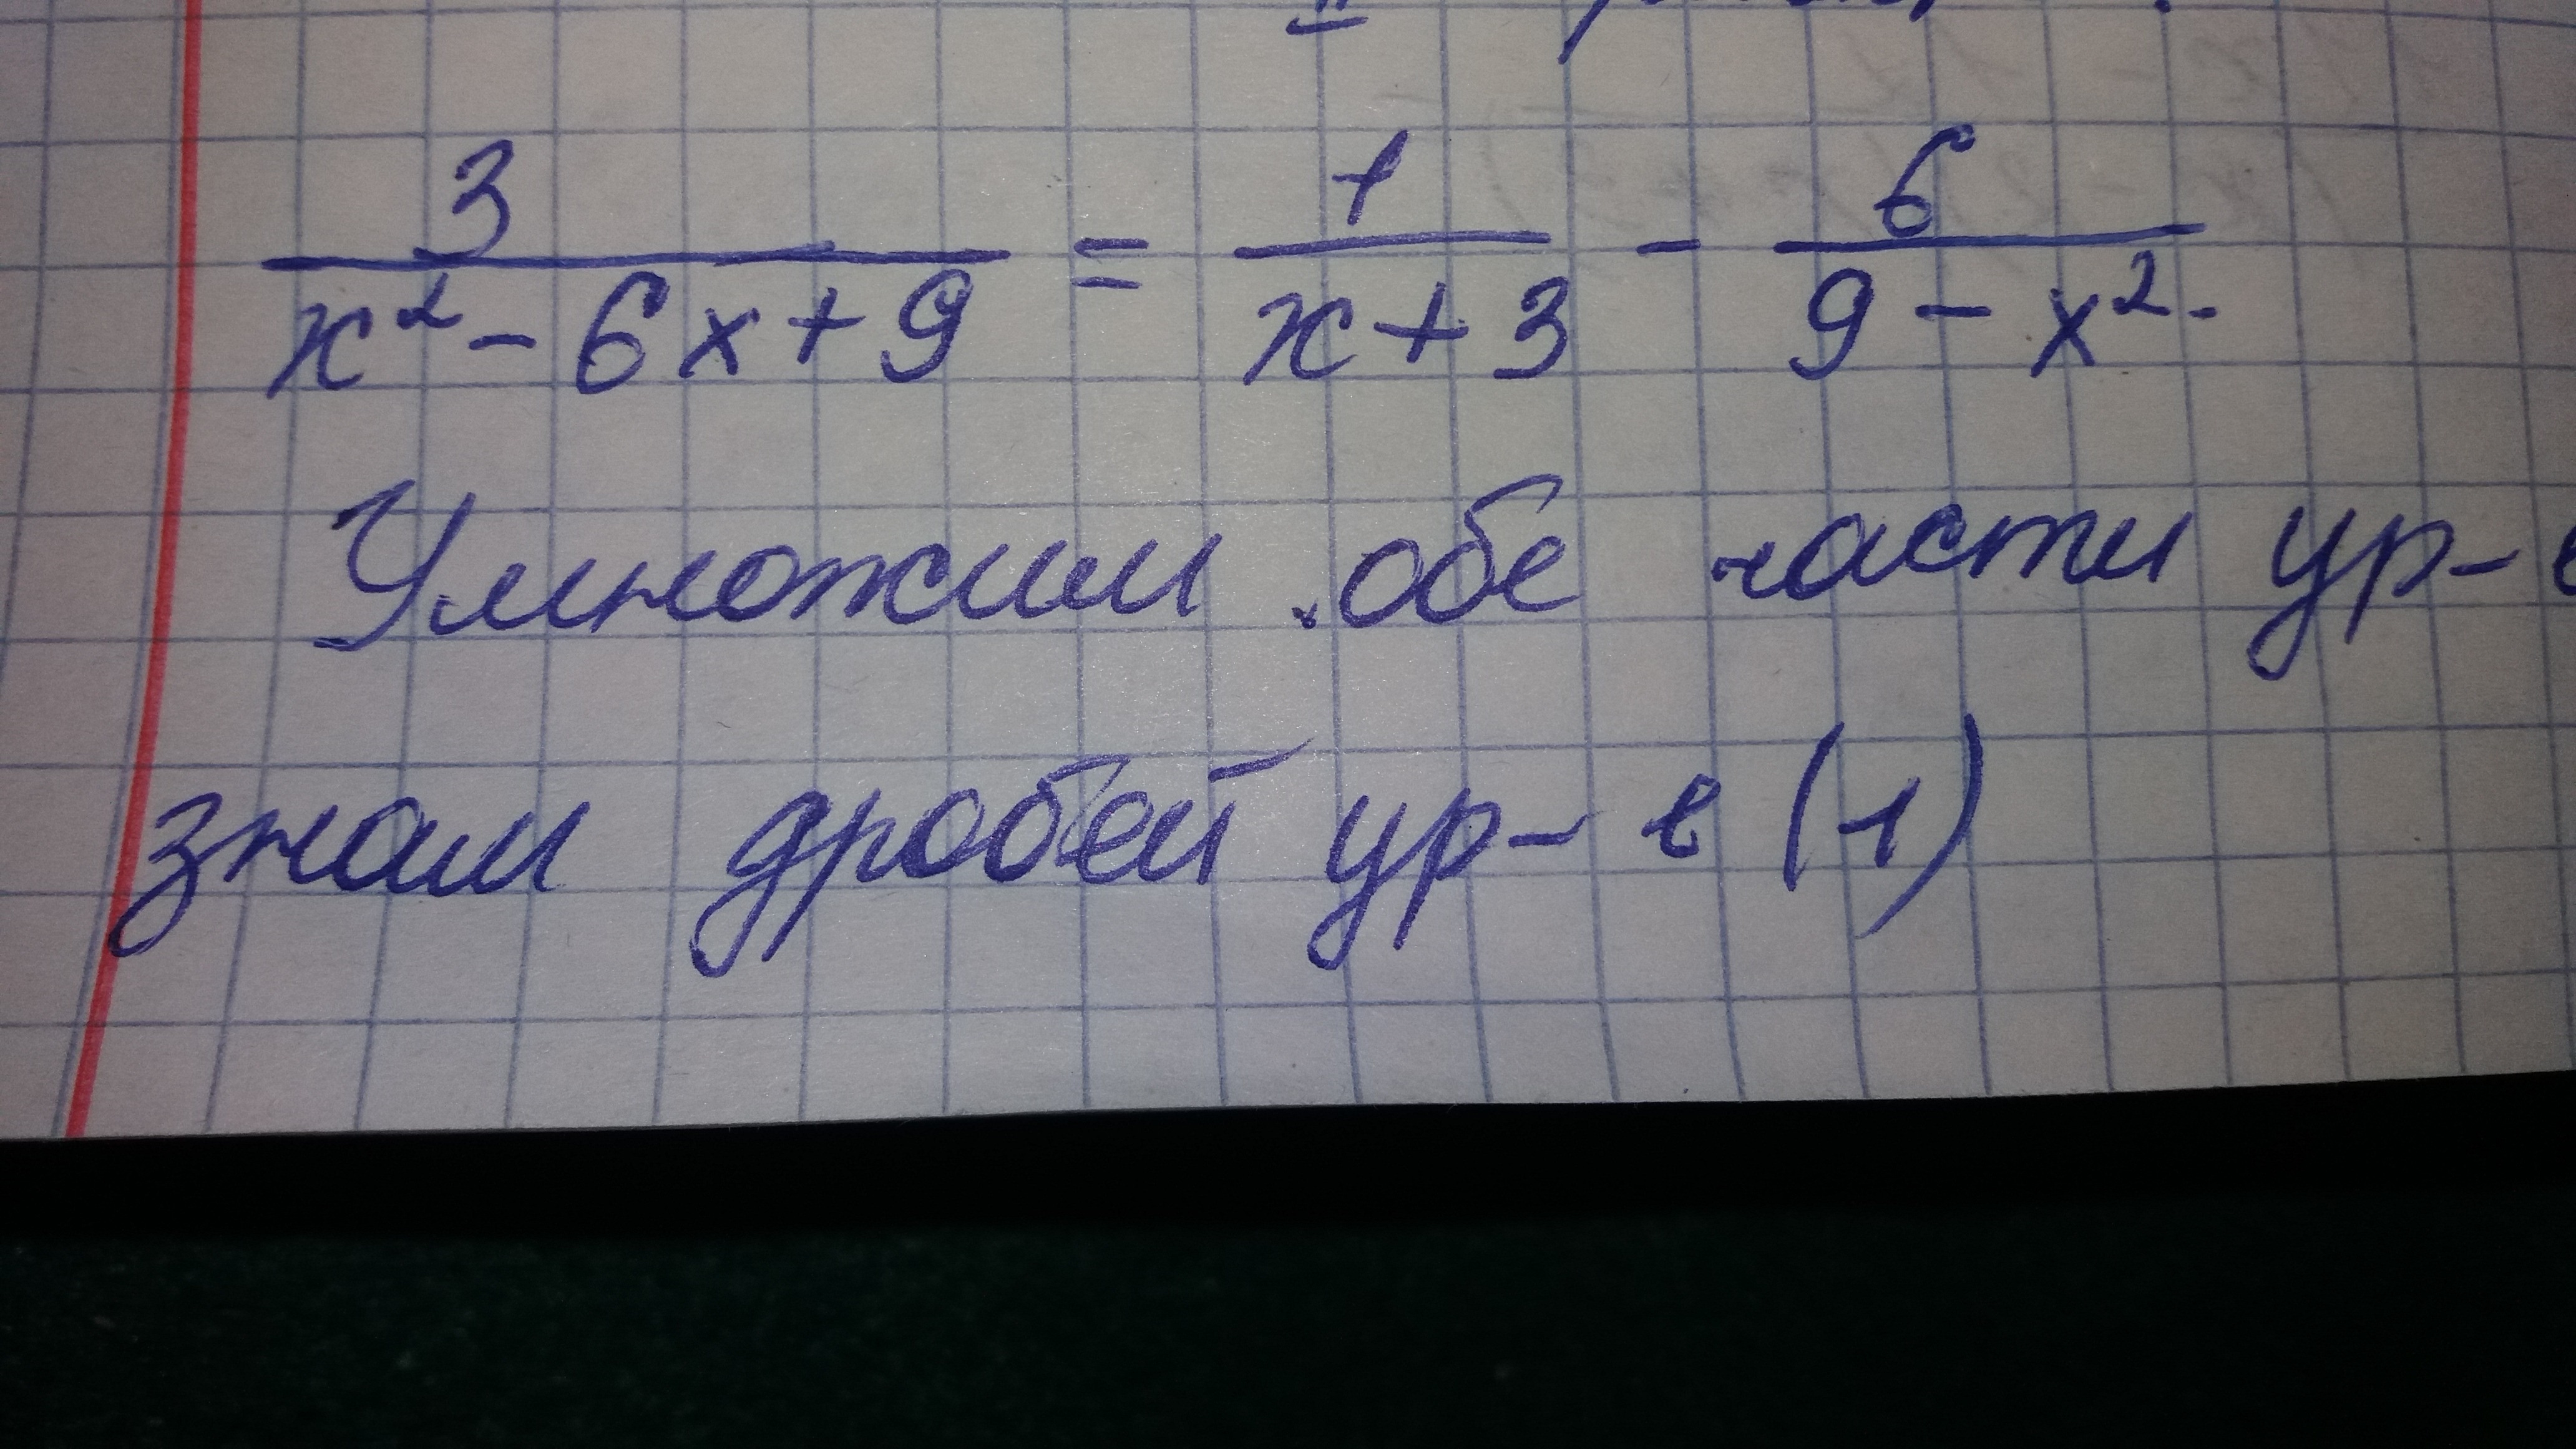 3/(x² - 6x + 9) = 1/(x + 3) - 6/(9 - x²)
Умножим обе части ур-е
знам дробей ур-е (1)